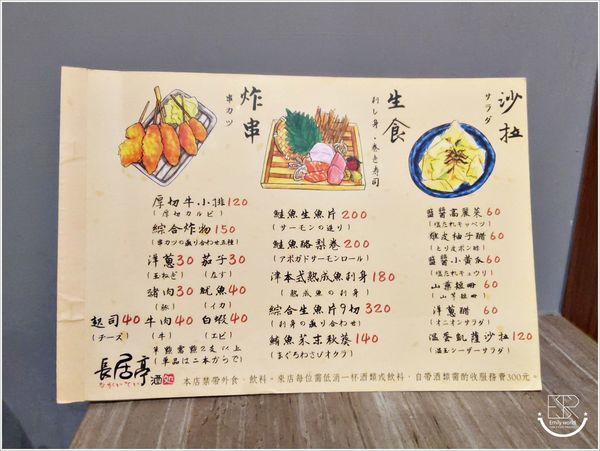 炸串
串カツ
厚切牛小排120
(厚切カルビ)
綜合炸物150
(串カツの盛り合わせ五種)
洋蔥30 茄子30
(玉ねぎ) (なす)
豬肉30 魷魚40
(豚) (イカ)
起司40 牛肉40 白蝦40
(チーズ) (牛) (エビ)
單點需點2支以上
(単品は二本からで)
生食
刺し身・巻き寿司
鮭魚生魚片200
(サーモンの造り)
鮭魚酪梨卷200
(アボガドサーモンロール)
津本式熟成魚刺身180
(熟成魚の刺身)
綜合生魚片9切320
(刺身の盛り合わせ)
鮪魚山葵秋葵140
(まぐろわさびオクラ)
沙拉
サラダ
鹽醬高麗菜60
(塩だれキャベツ)
雞皮柚子醋60
(とり皮ポン酢)
鹽醬小黃瓜60
(塩だれキュウリ)
山藥細麵60
洋蔥醋60
(オニオンサラダ)
溫蛋凱薩沙拉120
(温玉シーザーサラダ)
長居亭 酒処
ながいてい
本店禁帶外食、飲料。來店每位需低消一杯酒類或飲料，自帶酒類需酌收服務費300元。
ESR
Emily world